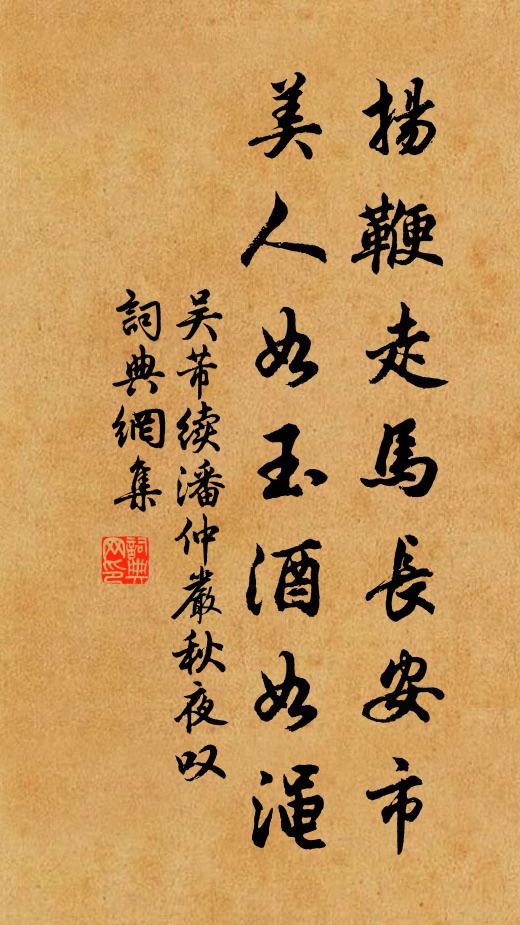 揚鞭走馬長安市
美人如玉酒如渑
吴芾续潘仲嚴秋夜叹
詞典網集
詞典
网印